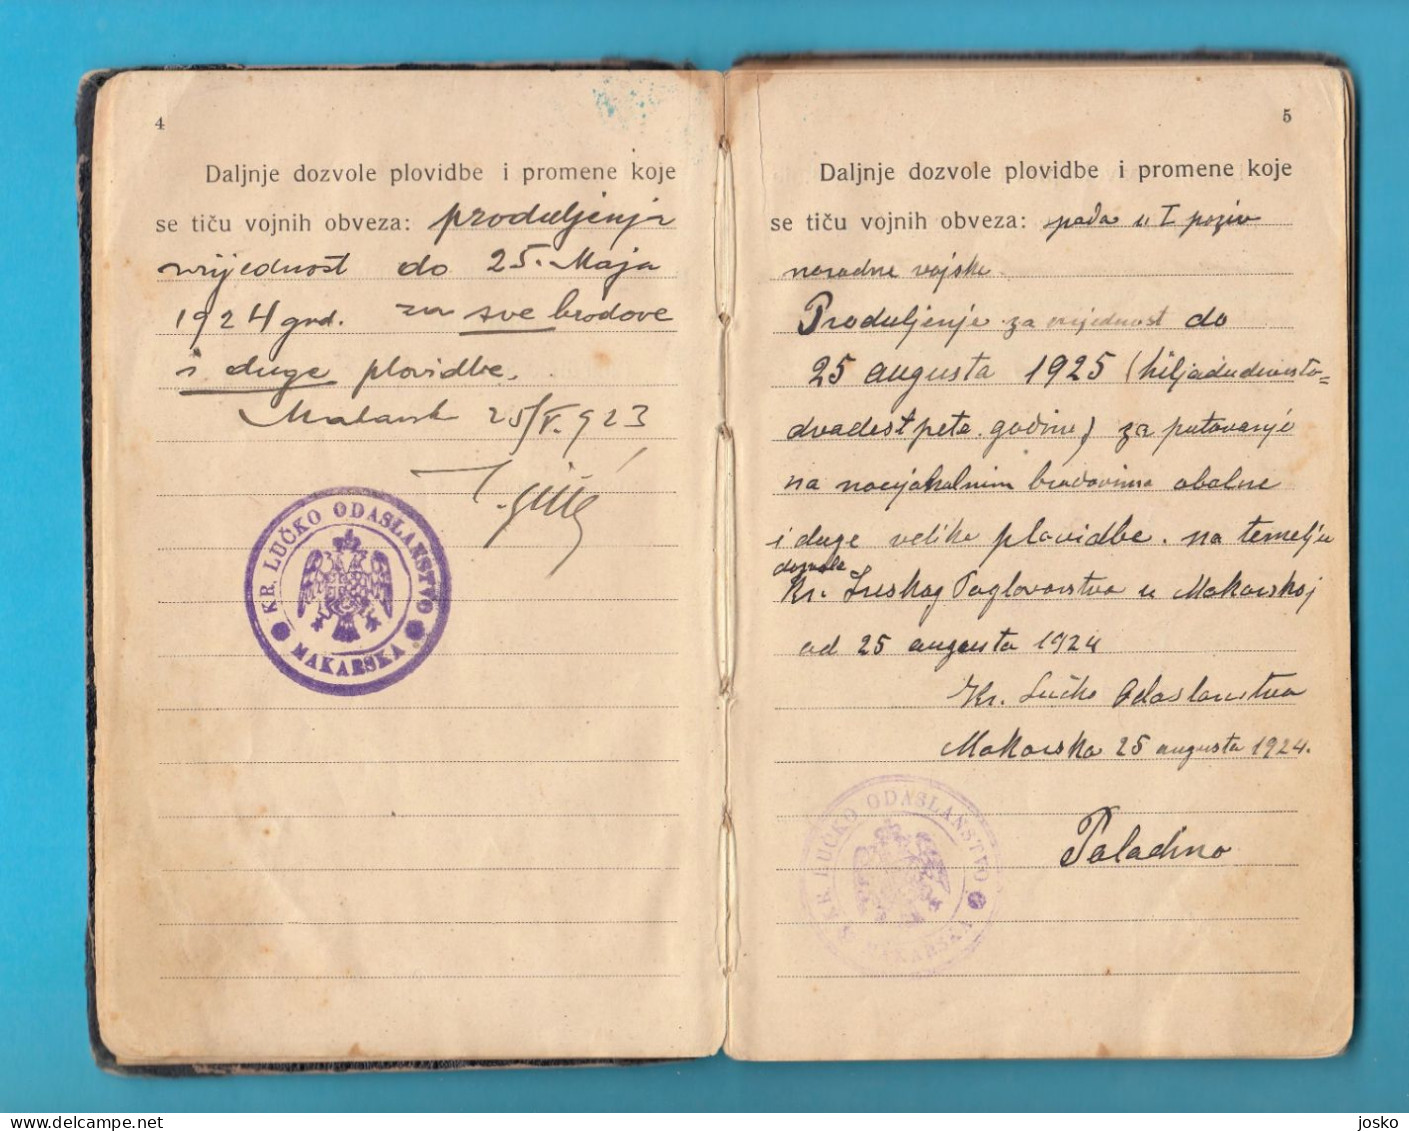 4
Daljnje dozvole plovidbe i promene koje
se tiču vojnih obveza: produljenja
vrijednost do 25. Maja
1924 god. za sve brodove
i duge plovidbe.
Makarska 25/V. 923
KR. LUČKO ODASLANSTVO
MAKARSKA
5
Daljnje dozvole plovidbe i promene koje
se tiču vojnih obveza: pada u I poziv
narodne vojske
Produljenje za vrijednost do
25 augusta 1925 (hiljadudevesto-
dvadestpeta godine) za putovanje
na nacijonalnim brodovima obalne
i duge velike plovidbe. na temelju
dozvole
Kr. Sreskog Poglavarstva u Makarskoj
od 25 augusta 1924
Kr. Lučko Odaslanstvo
Makarska 25 augusta 1924.
Paladino
KR. LUČKO ODASLANSTVO
MAKARSKA
delcampe.net
josko